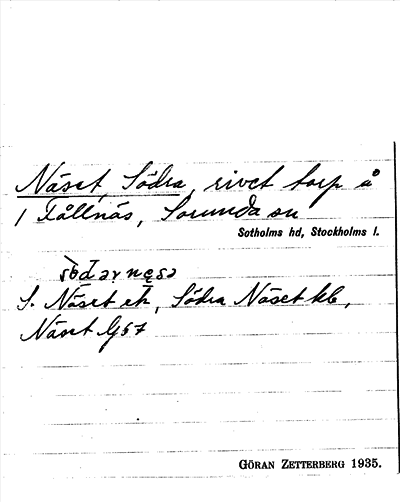 Näset, Södra, rivet torp å
1 Fållnäs, Sorunda sn
Sotholms hd, Stockholms l.
S. Näset ek, Södra Näset kb,
Näset G57
GÖRAN ZETTERBERG 1935.